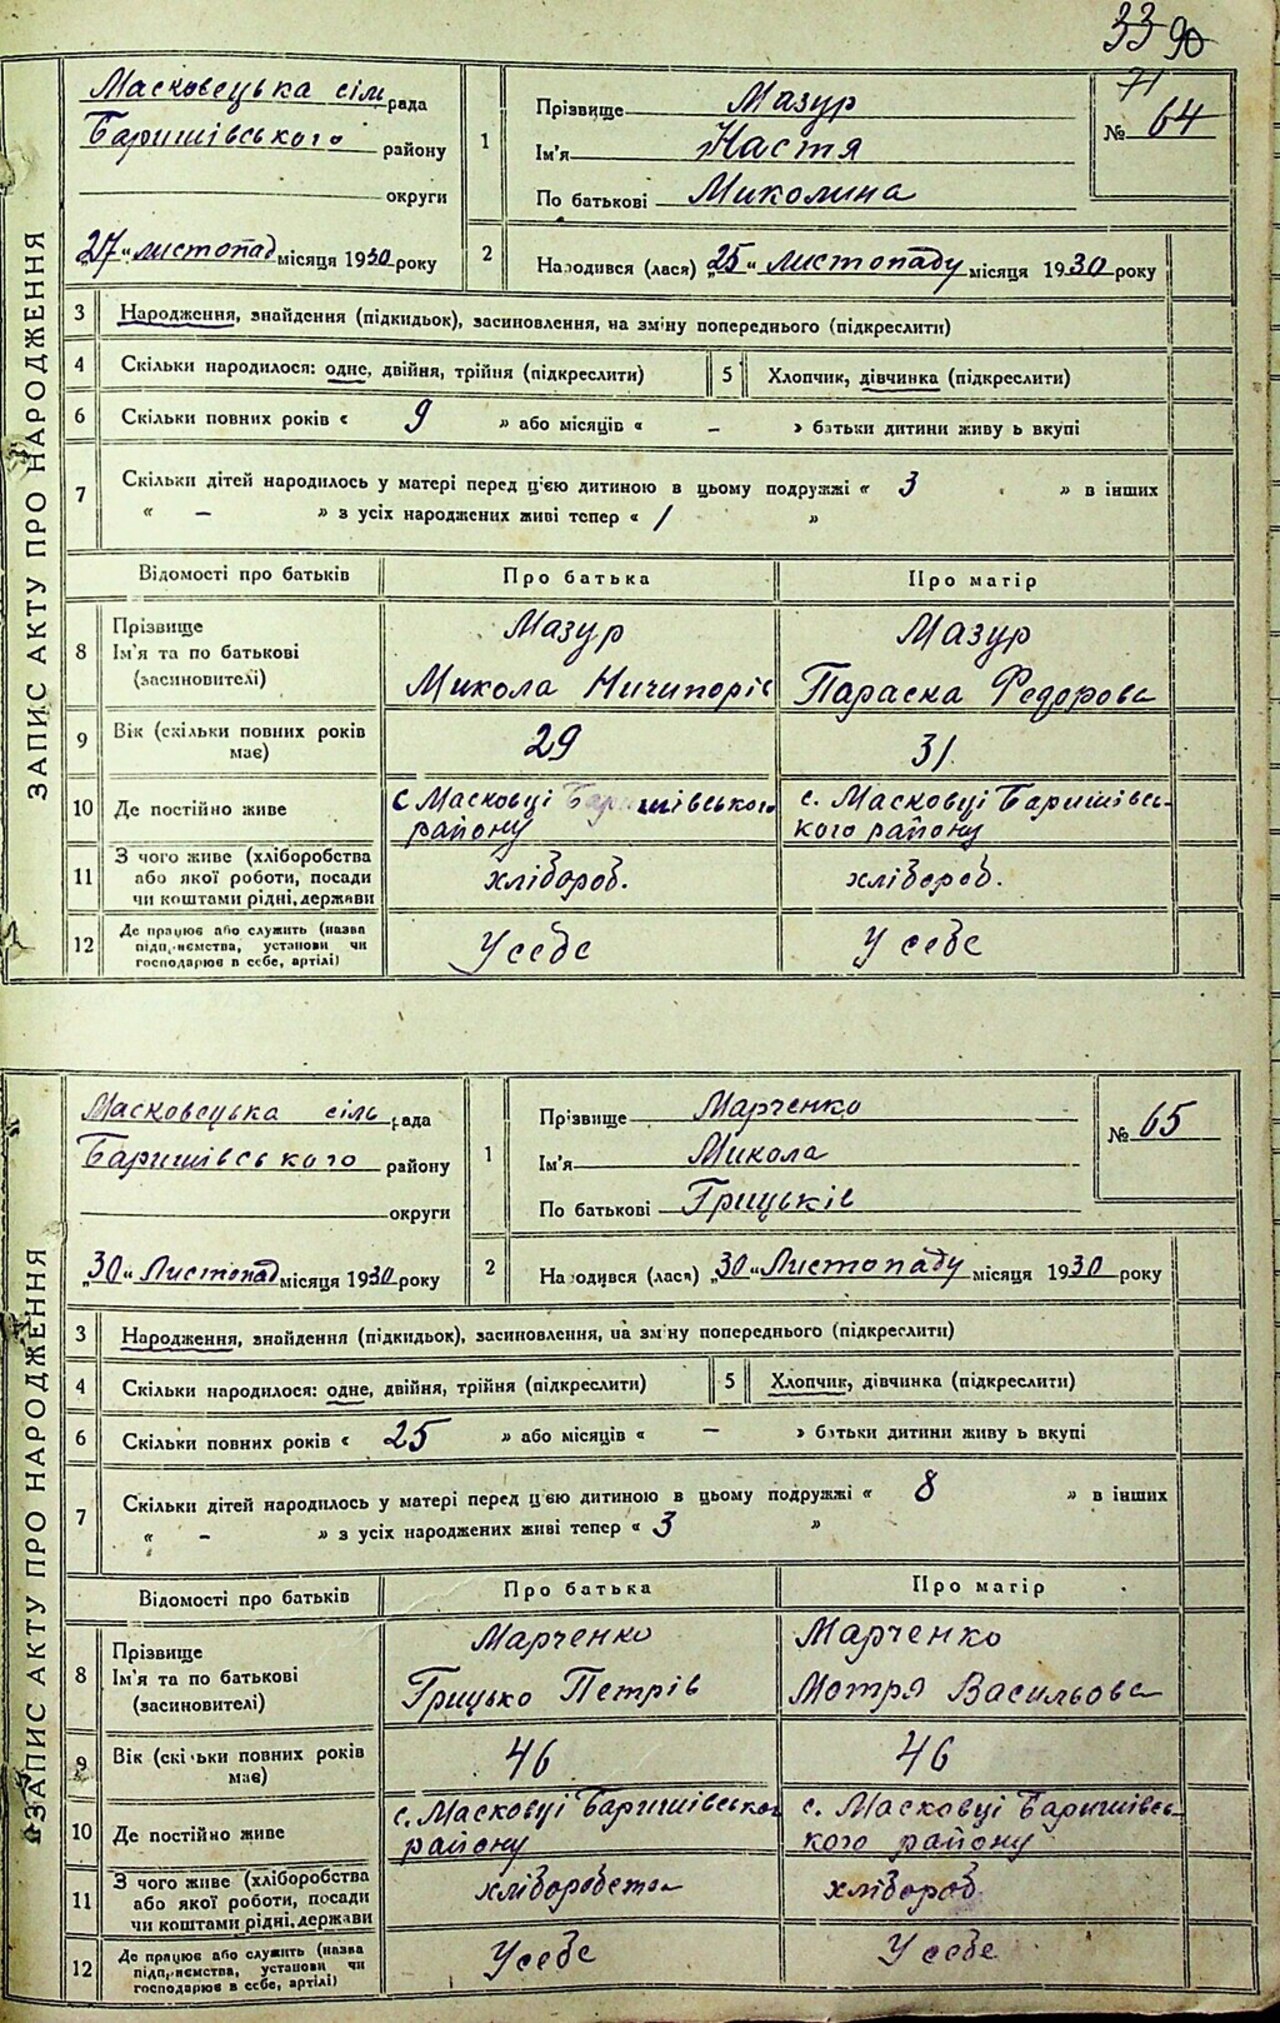 33 90
ЗАПИС АКТУ ПРО НАРОДЖЕННЯ
Масковецька сіль рада
Баришівського району
округи
„27“ листопад місяця 1930 року
1
Прізвище Мазур
Ім'я Настя
По батькові Миколина
71
№ 64
2
Народився (лася) „25“ листопаду місяця 1930 року
3 Народження, знайдення (підкидьок), засиновлення, на зміну попереднього (підкреслити)
4 Скільки народилося: одне, двійня, трійня (підкреслити) 5 Хлопчик, дівчинка (підкреслити)
6 Скільки повних років « 9 » або місяців « – » батьки дитини живу ь вкупі
7 Скільки дітей народилось у матері перед цією дитиною в цьому подружжі « 3 » в інших
« – » з усіх народжених живі тепер « 1 »
Відомості про батьків Про батька Про матір
8 Прізвище Мазур Мазур
Ім'я та по батькові Микола Ничипорів Параска Федорова
(засиновителі)
9 Вік (скільки повних років має) 29 31.
10 Де постійно живе с Масковці Баришівського району с. Масковці Баришівського району
11 З чого живе (хліборобства або якої роботи, посади чи коштами рідні, держави хлібороб. хлібороб.
12 Де працює або служить (назва підприємства, установи чи господарює в себе, артілі) У себе У себе
ЗАПИС АКТУ ПРО НАРОДЖЕННЯ
Масковецька сіль рада
Баришівського району
округи
„30“ Листопад місяця 1930 року
1
Прізвище Марченко
Ім'я Микола
По батькові Грицьків
№ 65
2
Народився (лася) „30“ Листопаду місяця 1930 року
3 Народження, знайдення (підкидьок), засиновлення, на зміну попереднього (підкреслити)
4 Скільки народилося: одне, двійня, трійня (підкреслити) 5 Хлопчик, дівчинка (підкреслити)
6 Скільки повних років « 25 » або місяців « – » батьки дитини живу ь вкупі
7 Скільки дітей народилось у матері перед цією дитиною в цьому подружжі « 8 » в інших
« – » з усіх народжених живі тепер « 3 »
Відомості про батьків Про батька Про матір
8 Прізвище Марченко Марченко
Ім'я та по батькові Грицько Петрів Мотря Васильова
(засиновителі)
9 Вік (скільки повних років має) 46 46
10 Де постійно живе с. Масковці Баришівського району с. Масковці Баришівського району
11 З чого живе (хліборобства або якої роботи, посади чи коштами рідні, держави хліборобства хлібороб
12 Де працює або служить (назва підприємства, установи чи господарює в себе, артілі) У себе У себе